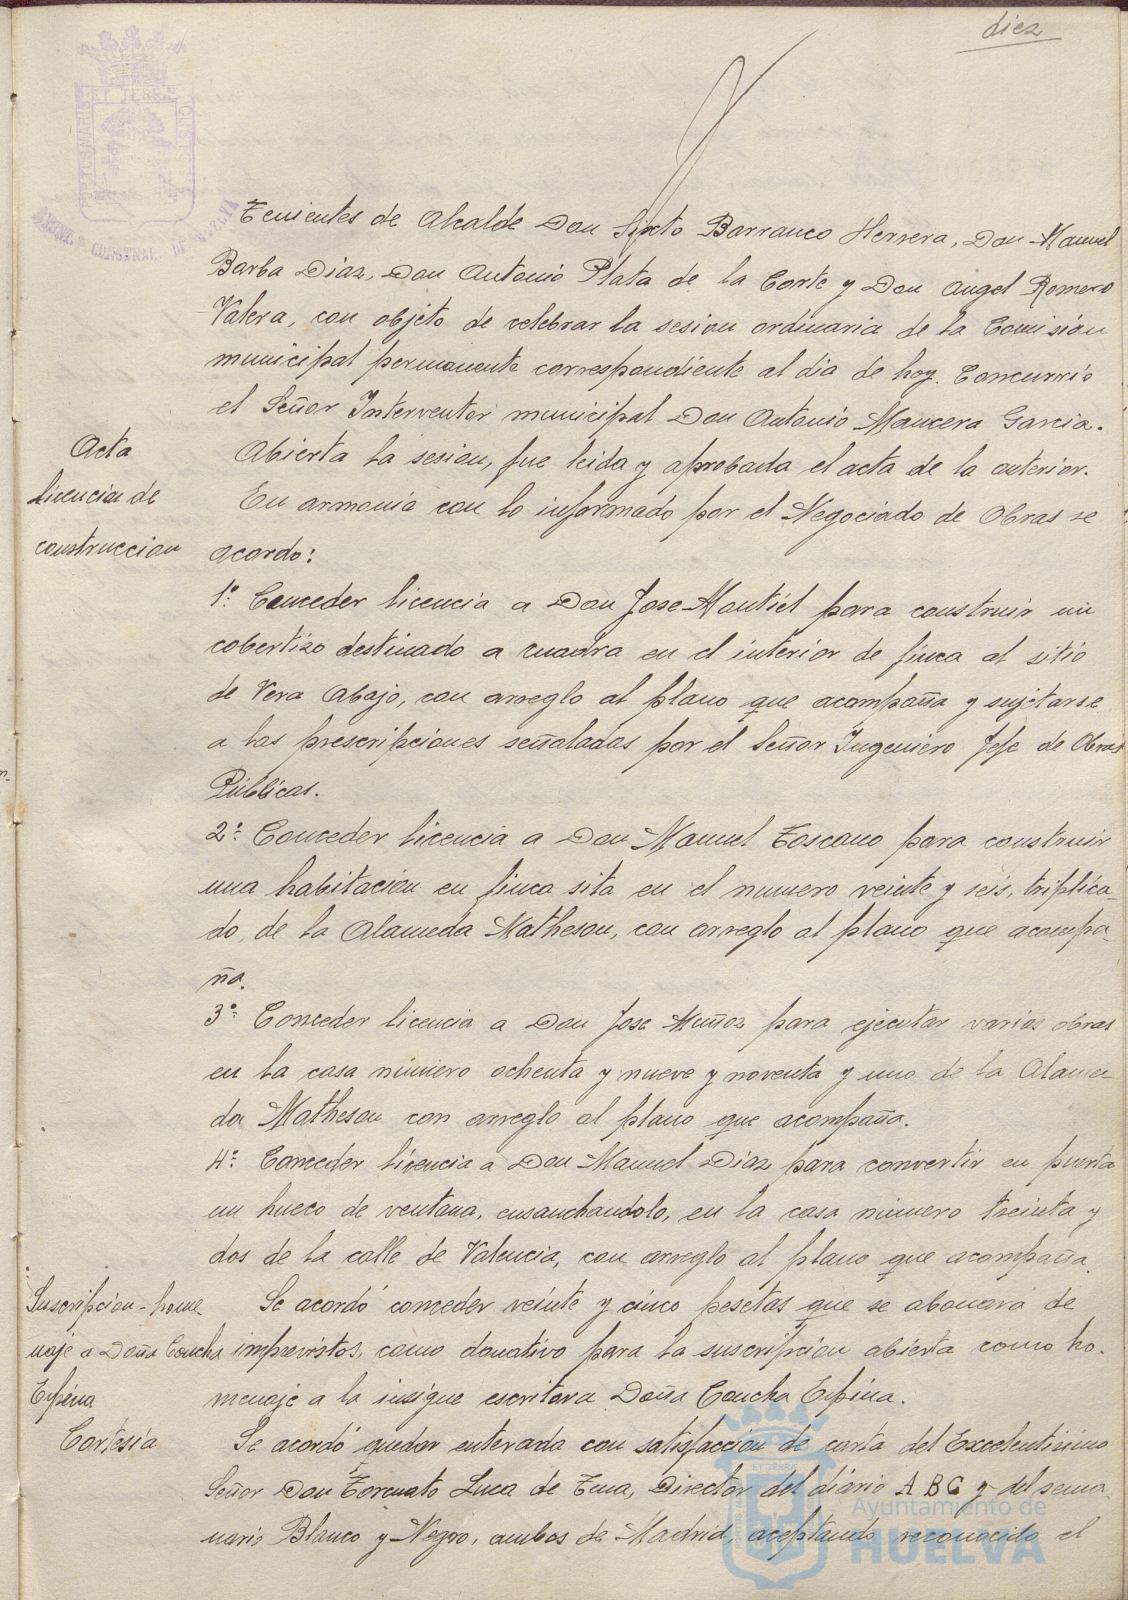 diez
Tenientes de Alcalde Don Sixto Barranco Herrera, Don Manuel
Barba Diaz, Don Antonio Plata de la Corte y Don Angel Romero
Valera, con objeto de celebrar la sesion ordinaria de la Comisión
municipal permanente correspondiente al dia de hoy. Concurrió
el Señor Interventor municipal Don Antonio Mancera Garcia.
Acta
Abierta la sesion, fue leida y aprobada el acta de la anterior.
Licencia de
En armonia con lo informado por el Negociado de Obras se
construccion
acordo:
1º: Conceder licencia a Don Jose Montiel para construir un
cobertizo destinado a cuadra en el interior de finca al sitio
de Vera Abajo, con arreglo al plano que acompaña y sujetarse
a las prescripciones señaladas por el Señor Ingeniero Jefe de Obras
Públicas.
2º: Conceder licencia a Don Manuel Toscano para construir
una habitacion en finca sita en el numero veinte y seis, triplica-
do, de la Alameda Matheson, con arreglo al plano que acompa-
ña.
3º: Conceder licencia a Don Jose Muñoz para ejecutar varias obras
en la casa número ochenta y nueve y noventa y uno de la Alame-
da Matheson con arreglo al plano que acompaña.
4º: Conceder licencia a Don Manuel Diaz para convertir en puerta
un hueco de ventana, ensanchandolo, en la casa número treinta y
dos de la calle de Valencia, con arreglo al plano que acompaña.
Suscripcion-home-
naje a Doña Concha
Espina
Se acordó conceder veinte y cinco pesetas que se abonará de
imprevistos, como donativo para la suscripcion abierta como ho-
menaje a la insigne escritora Doña Concha Espina.
Cortesía
Se acordó quedar enterada con satisfaccion de carta del Excelentísimo
Señor Don Torcuato Luca de Tena, Director del diário A B C y del sema-
nario Blanco y Negro, ambos de Madrid, aceptando reconocido el
Ayuntamiento de
HUELVA